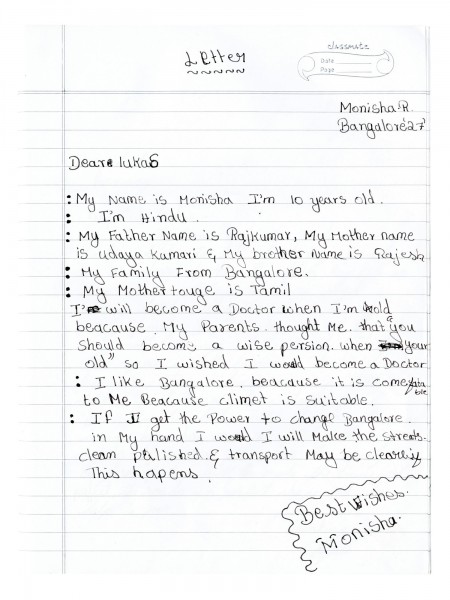 Letter
classmate
Date
Page
Monisha.R.
Bangalore'27'
Deare lukas
: My Name is Monisha I'm 10 years old.
: I'm Hindu.
: My Father Name is Rajkumar, My Mother name
is udaya kumari & My brother Name is Rajesh
: My Family From Bangalore.
: My Mothertouge is Tamil
I' will become a Doctor when I'm old
beacause. My Parents. thought Me. that "you
should become a wise persion. when your
old" so I wished I would become a Doctor
: I like Bangalore. beacause it is comeftatable
to Me Beacause climet is suitable.
: If I get the Power to change Bangalore.
in My hand I would I will Make the streets.
clean polished. & transport May be clearly
This hapens.
Best wishes.
Monisha.